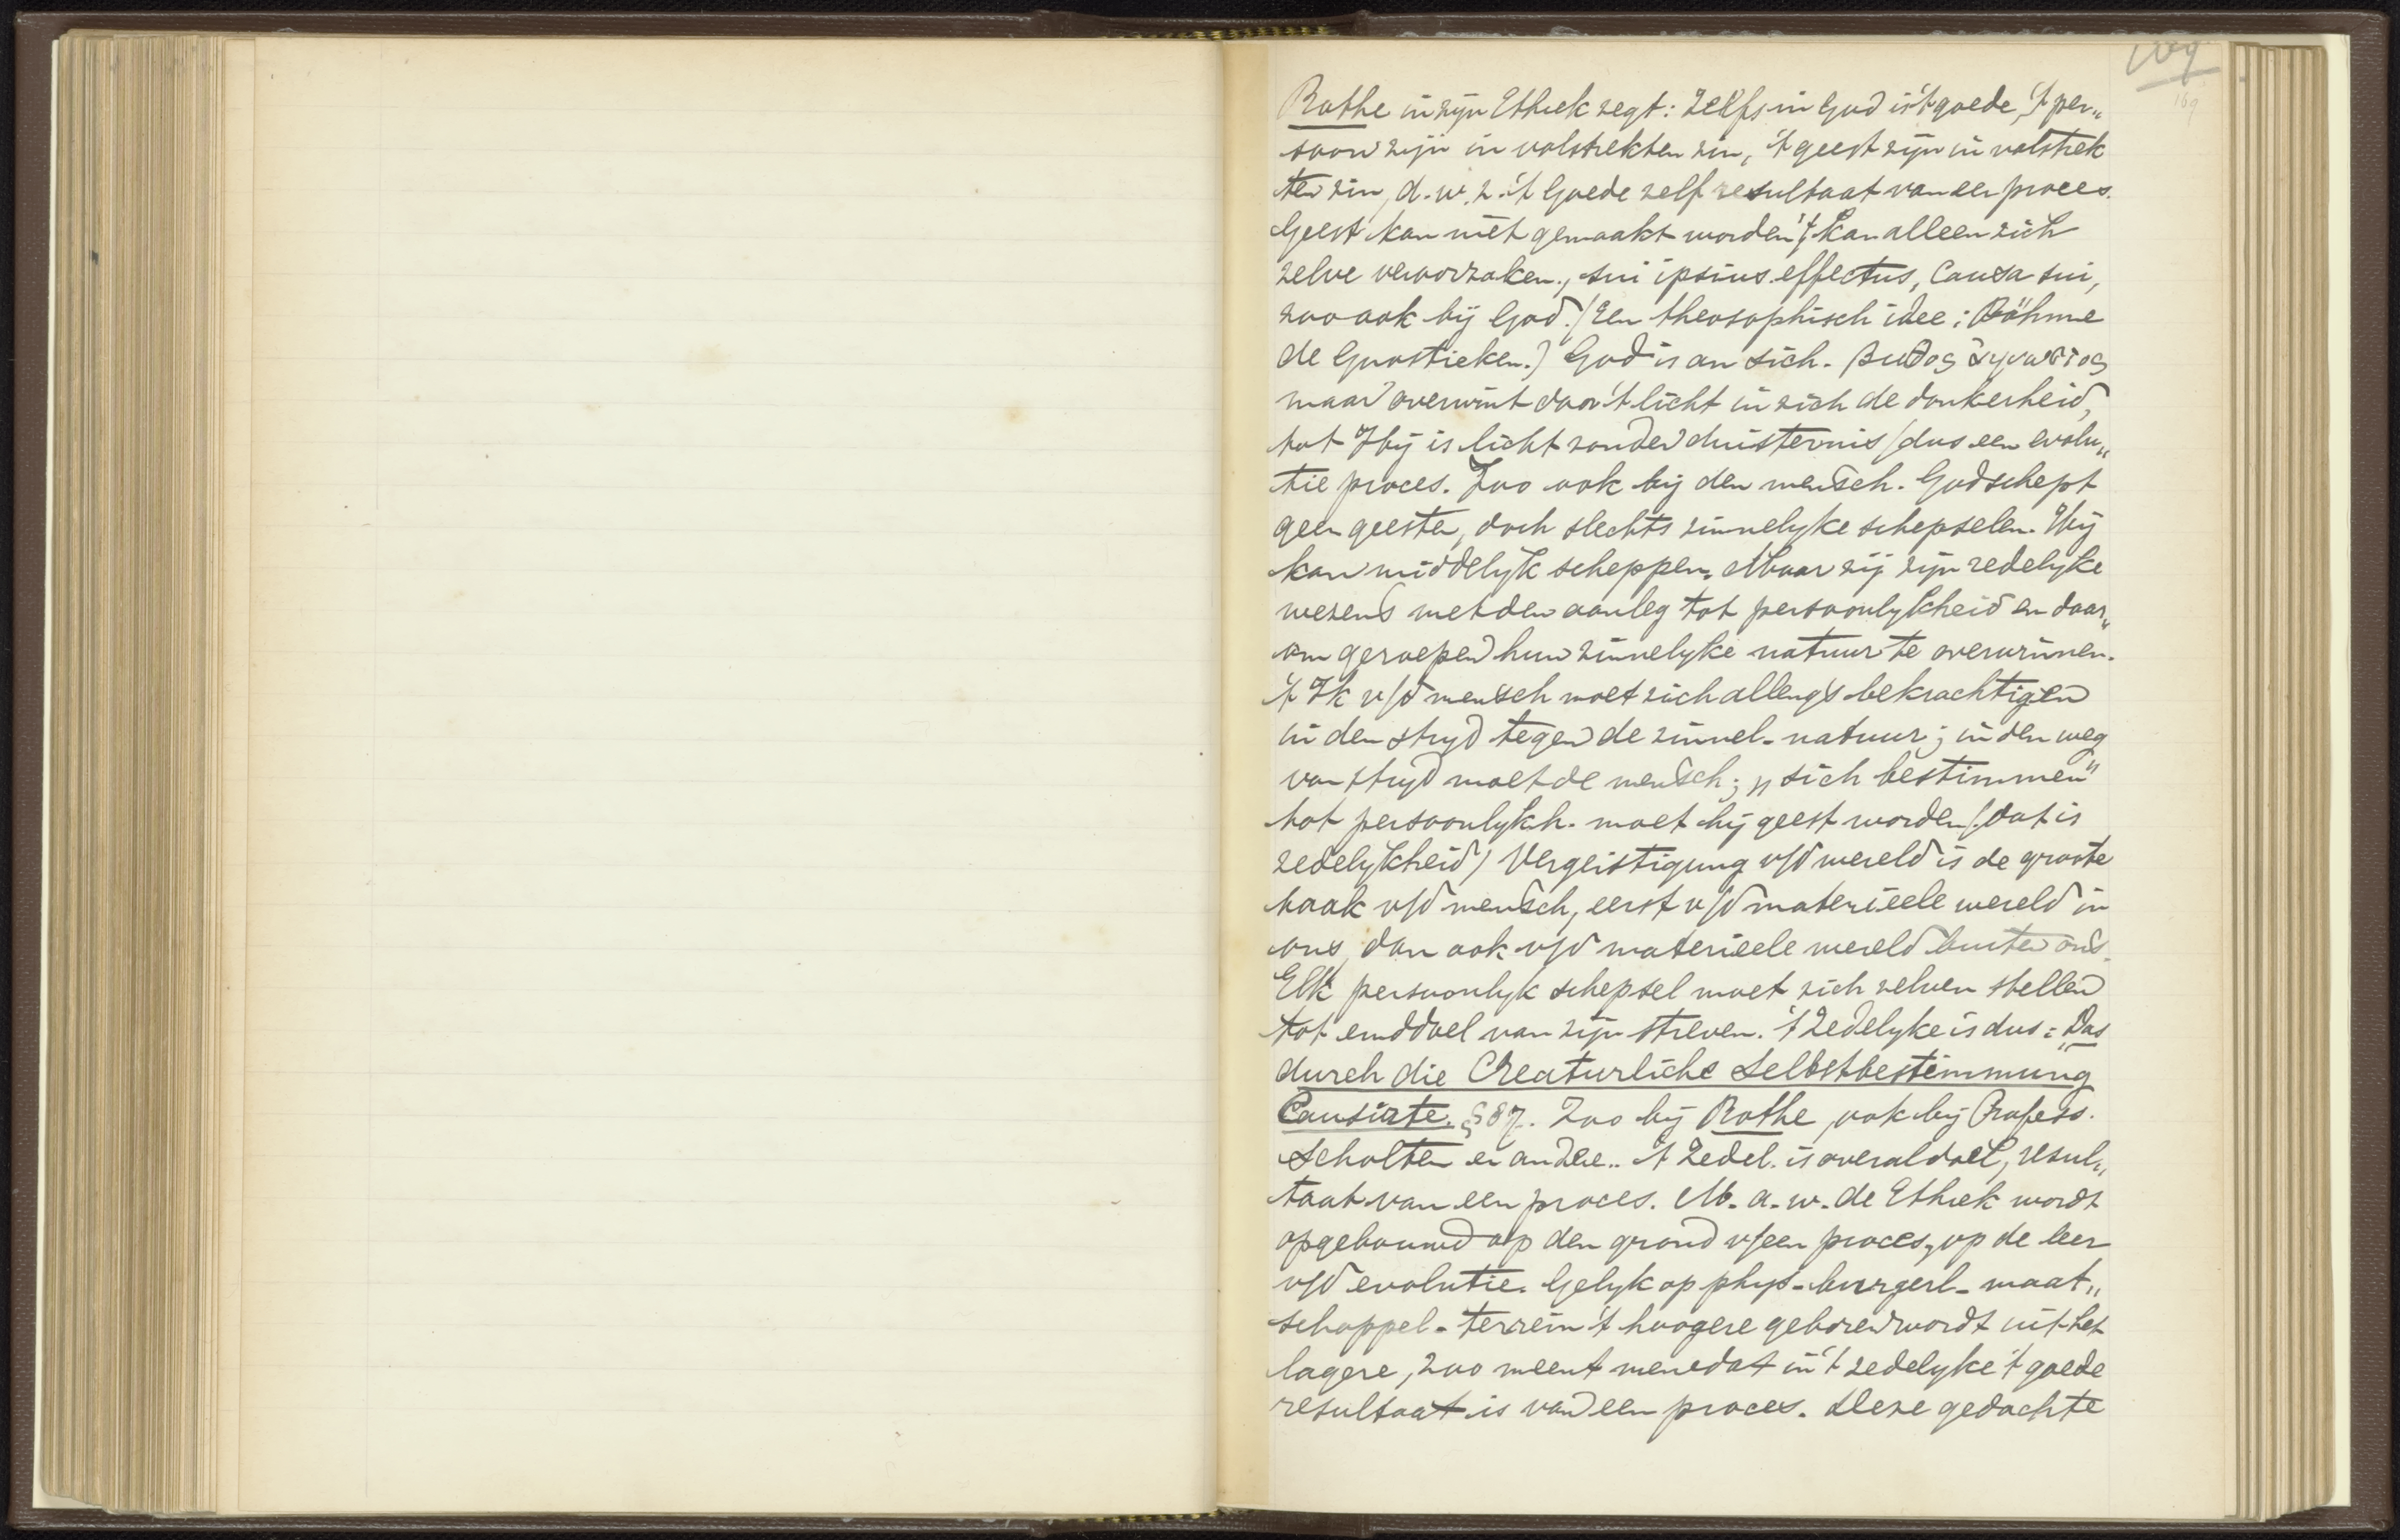 169
169
Rothe in zijn Ethiek zegt: Zelfs in God is 't goede, 't per„
soon zijn in volstrekten zin, 't geest zijn in volstrek
ten zin, d.w.z. 't Goede zelf resultaat van een proces.
Geest kan niet gemaakt worden, 't kan alleen zich
zelve veroorzaken, sui ipsius effectus, Causa sui,
zoo ook bij God. (Een theosophisch idee: Böhme
de Gnostieken.) God is an sich. βυθος ἄγνωστος
maar overwint door 't licht in zich de donkerheid,
tot Hij is licht zonder duisternis (dus een evolu„
tie proces. Zoo ook bij den mensch. God schept
geen geesten, doch slechts zinnelyke schepselen. Hij
kan middelyk scheppen. Maar zij zijn redelyke
wezens met den aanleg tot persoonlykheid en daar„
om geroepen hun zinnelyke natuur te overwinnen.
't Ik v/d mensch moet zich allengs bekrachtigen
in den stryd tegen de zinnel. natuur; in den weg
van stryd moet de mensch; „sich bestimmen"
tot persoonlykh. moet hij geest worden (dat is
zedelykheid) Vergeistigung v/d wereld is de groote
taak v/d mensch, eerst v/d materieele wereld in
ons, dan ook v/d materieele wereld buiten ons.
Elk persoonlyk schepsel moet zich zelven stellen
tot einddoel van zijn streven. 't Zedelyke is dus: „Das
durch die Creaturliche Selbstbestimmung
Causirte. § 87. Zoo bij Rothe, ook bij Profess.
Scholten en andere.. 't Zedel. is overal doel, resul„
taat van een proces. M. a. w. de Ethiek wordt
opgebouwd op den grond v/een proces, op de leer
v/d evolutie. Gelyk op phys. burgerl. maat„
schappel. terrein 't hoogere geboren wordt uit het
lagere, zoo meent men dat in 't zedelyke 't goede
resultaat is van een proces. Deze gedachte